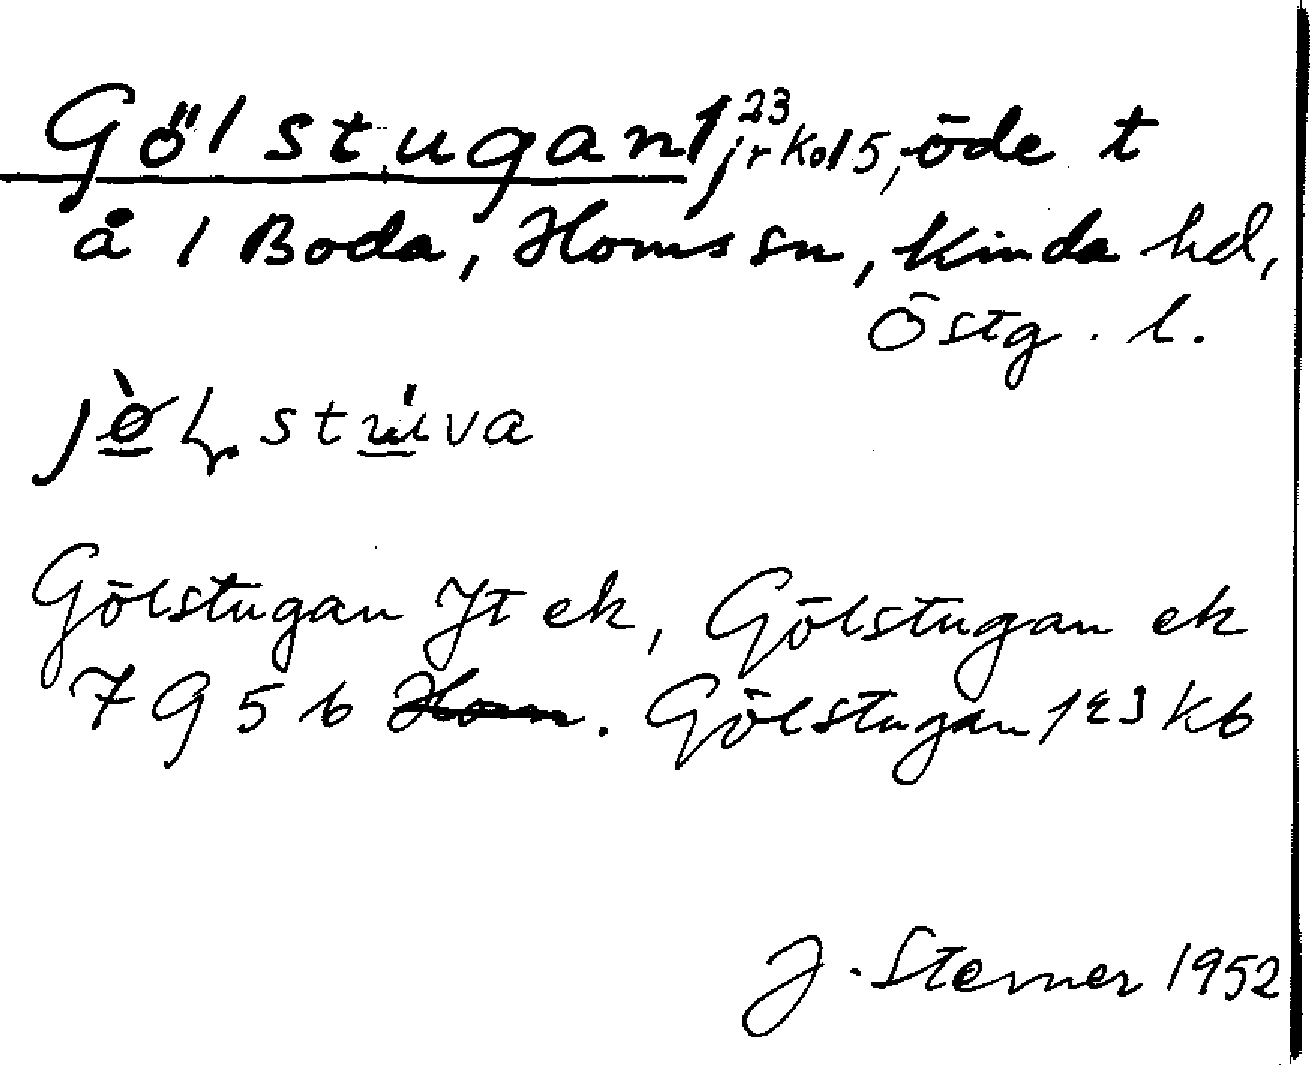 Gölstugan 1²³ jrkol5, öde t
å 1 Boda, Horns sn, Kinda hd,
Östg. l.
Gölstugan JT ek, Gölstugan ek
7 G 5 b Horn. Gölstugan 1²³ Kb
J. Sterner 1952